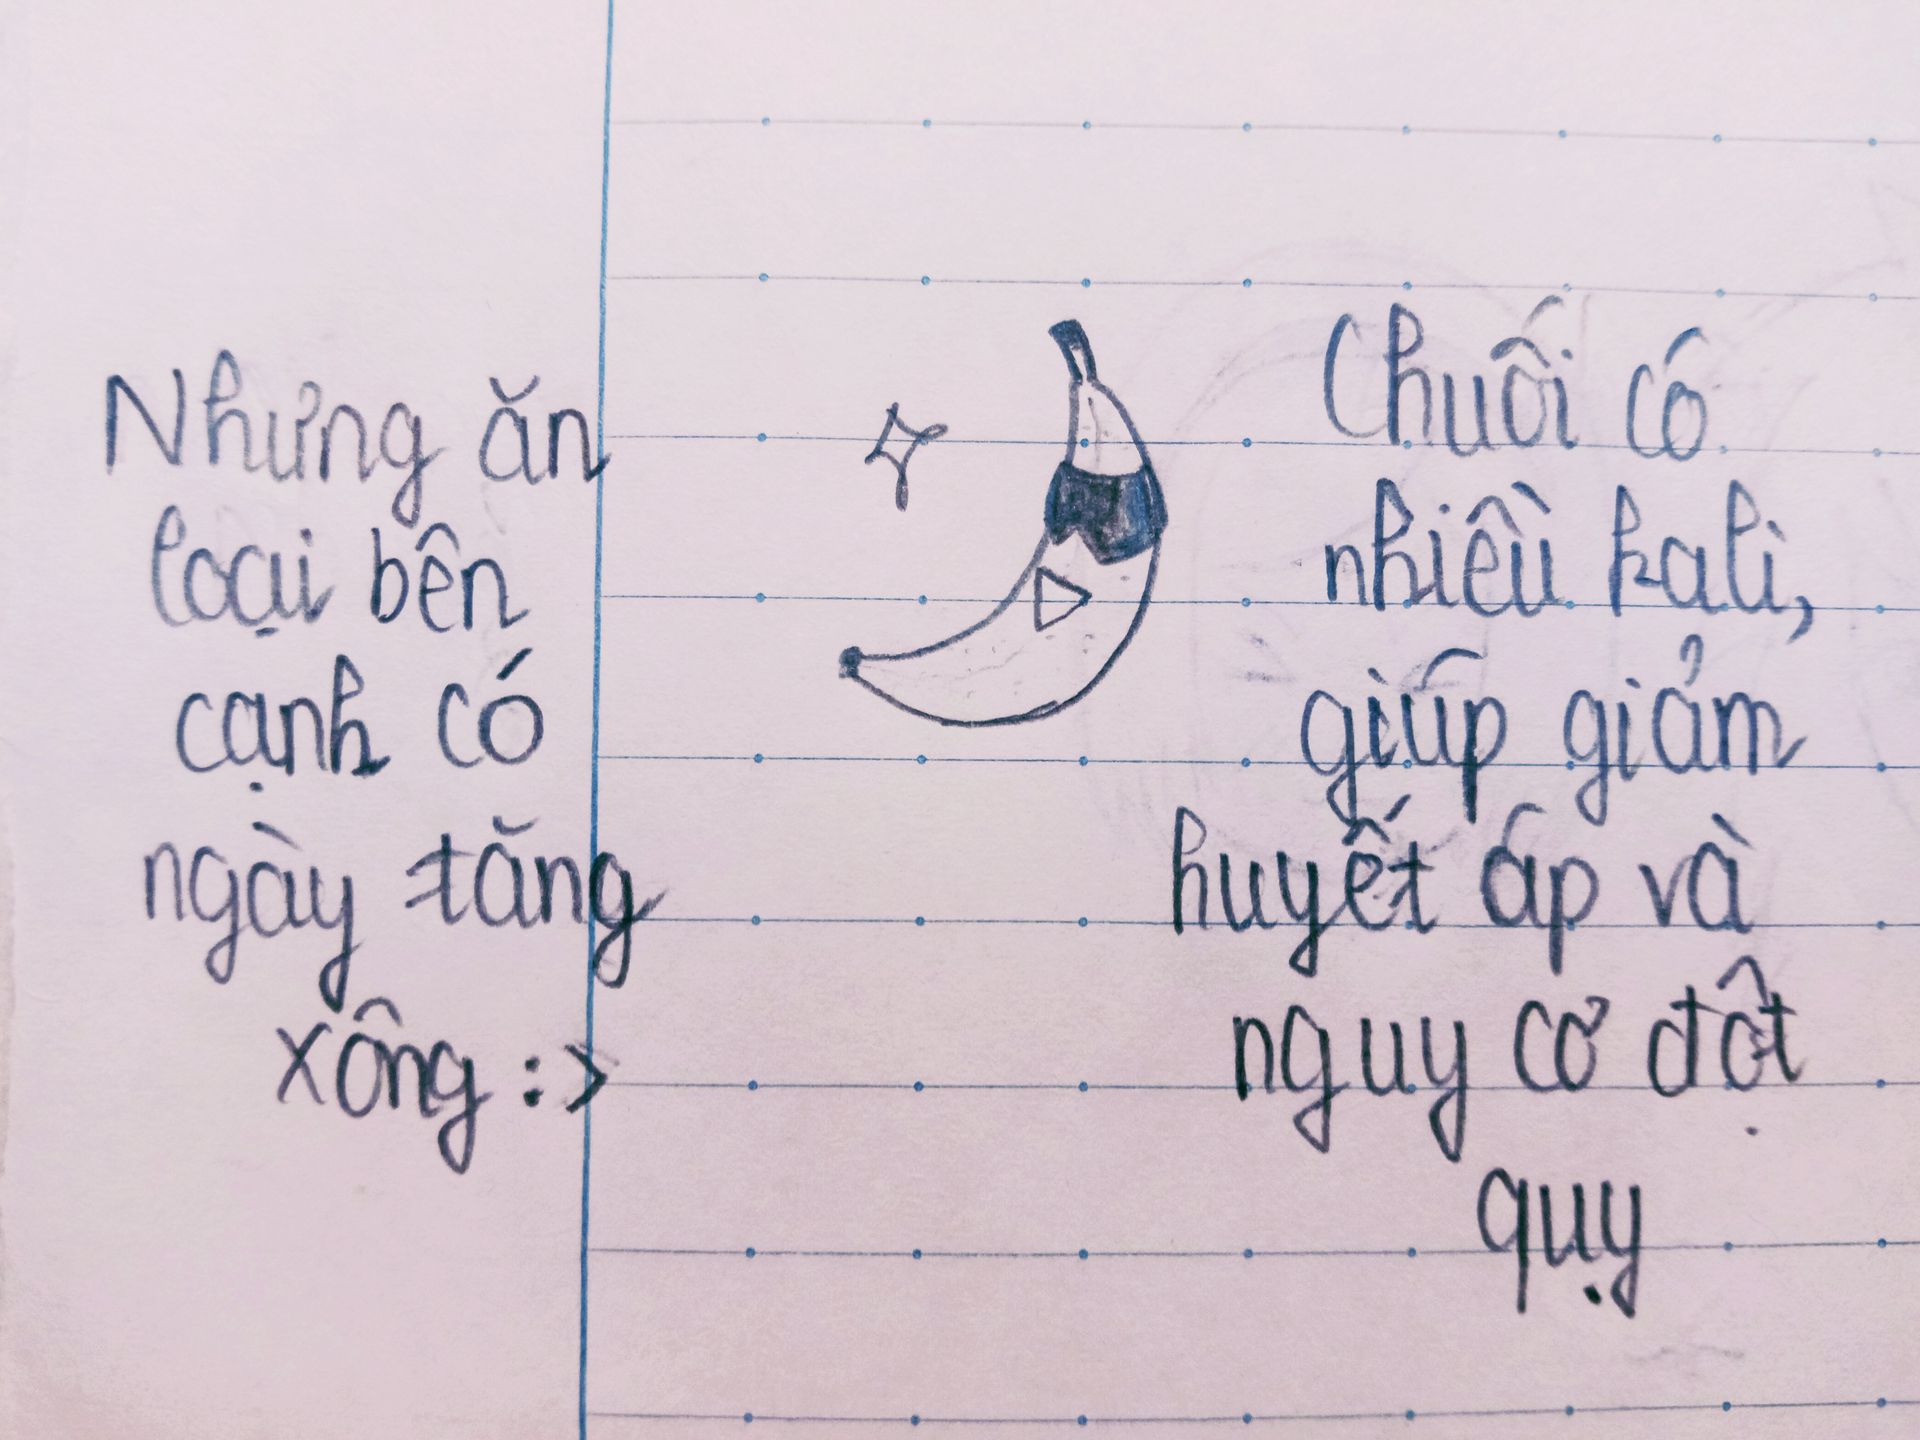 Nhưng ăn
loại bên
cạnh có
ngày tăng
xông :>
Chuối có
nhiều kali,
giúp giảm
huyết áp và
nguy cơ đột
quỵ